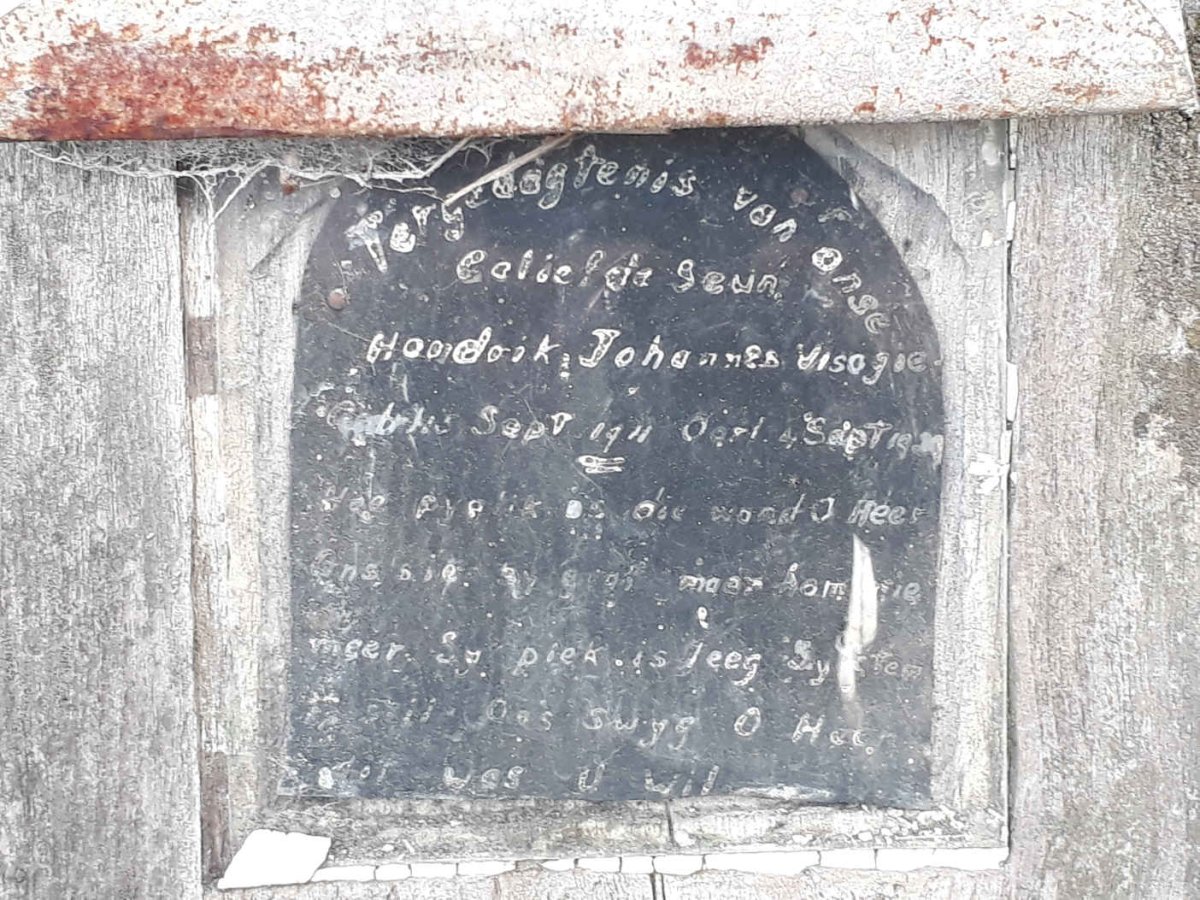 Ter gedagtenis van Onse
Geliefde Seun
Hendrik Johannes Visagie
Sept 1911 Oorl. 4 Sept
Hoe pynlik is die wond O Heer
Ons sig sy graf maar hom nie
meer. Sy plek is leeg Sy stem
Ons swyg O Heer
was U wil